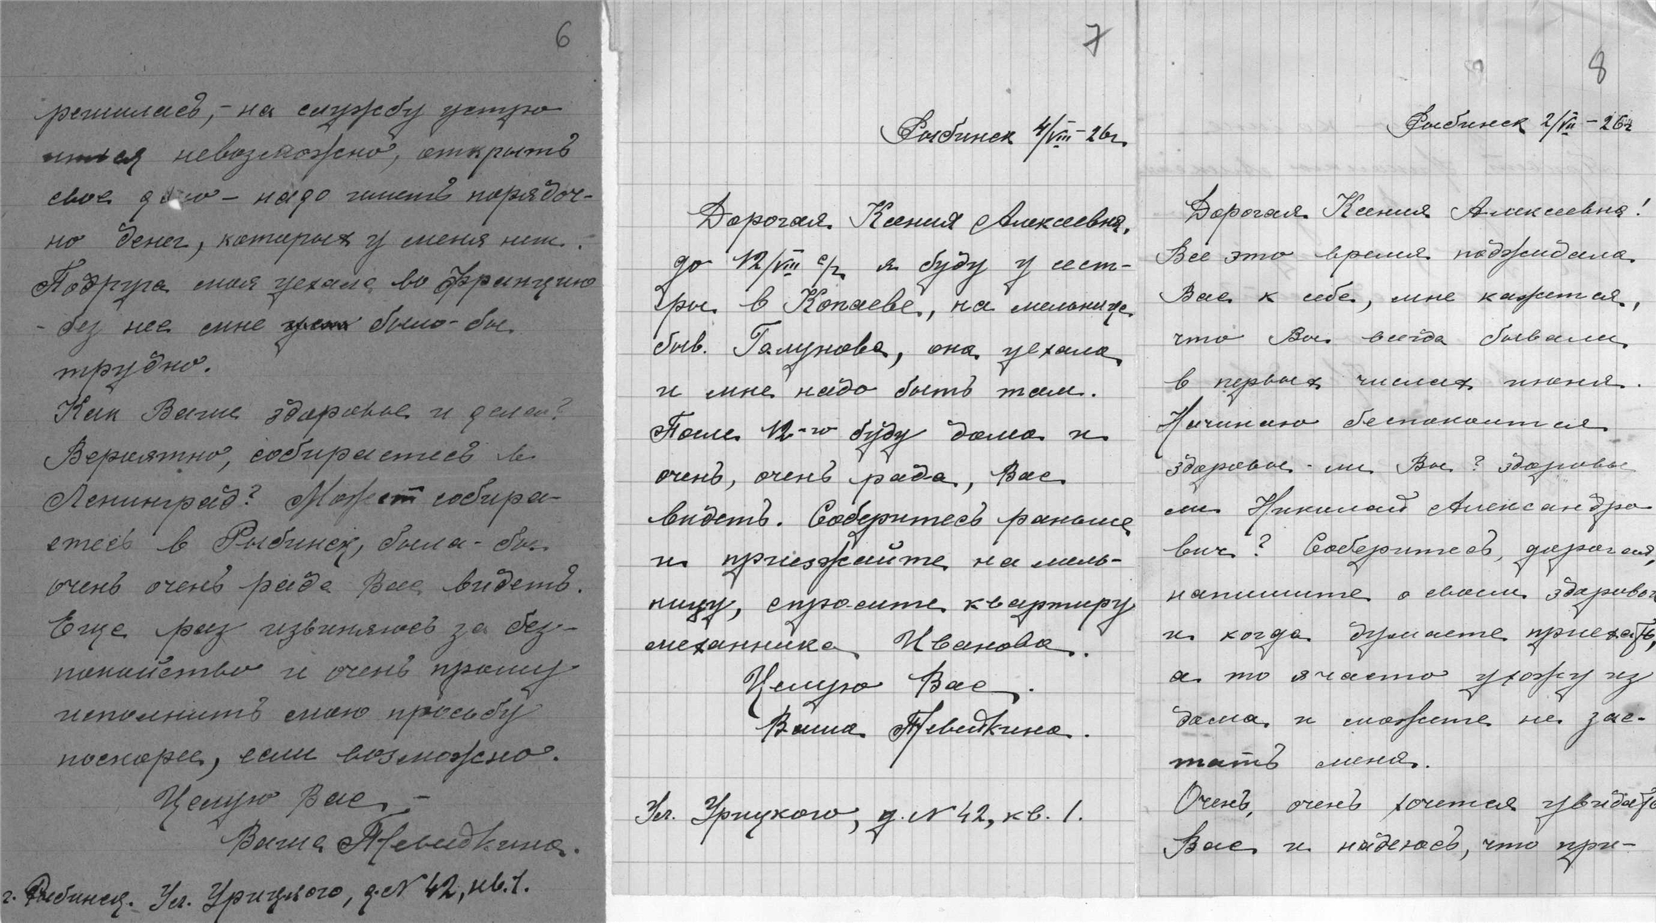 6
решилась, - на службу устро
иться невозможно, открыть
свое дело - надо иметь порядоч-
но денег, которых у меня нет.
Подруга моя уехала во Францию
- без нее мне было-бы
трудно.
Как Ваше здоровье и дела?
Вероятно, собираетесь в
Ленинград? Может собира-
етесь в Рыбинск, была-бы
очень очень рада Вас видеть.
Еще раз извиняюсь за без-
покойство и очень прошу
исполнить мою просьбу
поскорее, если возможно.
Целую Вас -
Ваша
г. Рыбинск. Ул. Урицкого, д. N 42, кв. 1.
7
Рыбинск 4/VIII - 26 г.
Дорогая Ксения Алексеевна,
до 12/VIII с/г я буду у сест-
ры в Копаеве, на мельнице
быв. Галунова, она уехала
и мне надо быть там.
После 12-го буду дома и
очень, очень рада, Вас
видеть. Соберитесь раньше
и приезжайте на мель-
ницу, спросите квартиру
механника Иванова.
Целую Вас.
Ваша
Ул. Урицкого, д. N 42, кв. 1.
8
Рыбинск 2/VII - 26 г
Дорогая Ксения Алексеевна!
Все это время поджидала
Вас к себе, мне кажется,
что Вы всегда бывали
в первых числах июня.
Начинаю беспокоится
здоровы-ли Вы? здоровы
ли Николай Александро
вич? Соберитесь, дорогая,
напишите о своем здоровьи
и когда думаете приехать,
а то я часто ухожу из
дома и можете не зас-
тать меня.
Очень, очень хочется увидать
Вас и надеюсь, что при-